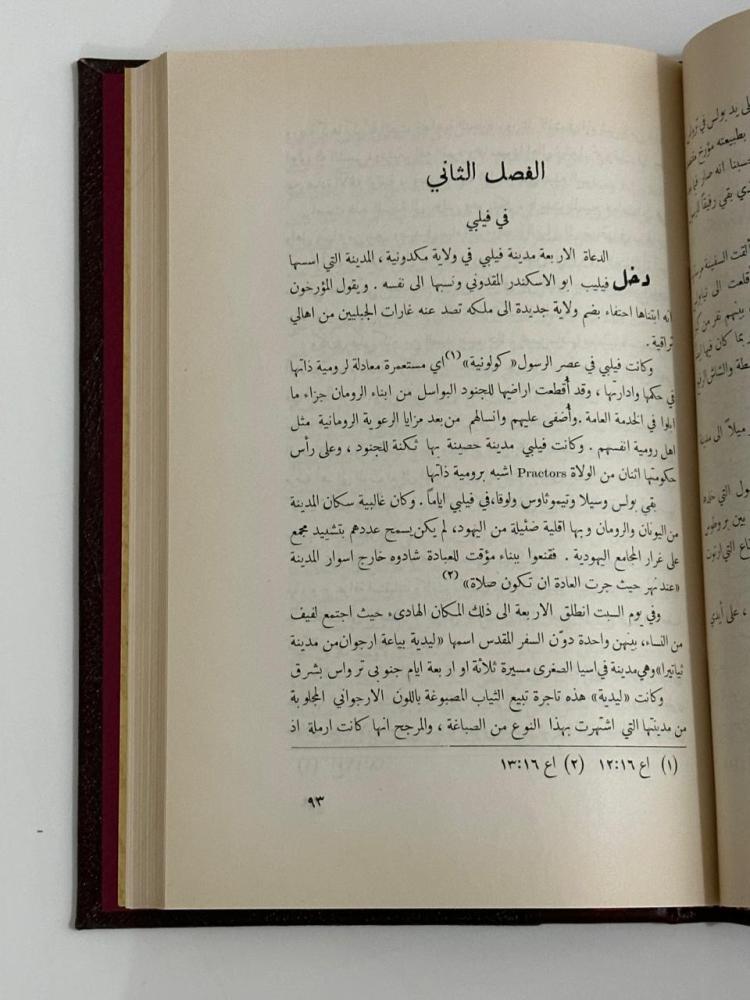 الفصل الثاني
في فيلبي
دخل الدعاة الاربعة مدينة فيلبي في ولاية مكدونية ، المدينة التي اسسها
فيليب ابو الاسكندر المقدوني ونسبها الى نفسه . ويقول المؤرخون
انه ابتناها احتفاء بضم ولاية جديدة الى ملكه تصد عنه غارات الجبليين من اهالي
ثراقية .
وكانت فيلبي في عصر الرسول « كولونية » (١) اي مستعمرة معادلة لرومية ذاتها
في حكمها وادارتها ، وقد أُقطعت اراضيها للجنود البواسل من ابناء الرومان جزاء ما
ابلوا في الخدمة العامة . وأُضفى عليهم وانسالهم من بعد مزايا الرعوية الرومانية مثل
اهل رومية انفسهم . وكانت فيلبي مدينة حصينة بها ثكنة للجنود ، وعلى رأس
حكومتها اثنان من الولاة Practors اشبه برومية ذاتها
بقي بولس وسيلا وتيموثاوس ولوقا، في فيلبي اياماً . وكان غالبية سكان المدينة
من اليونان والرومان وبها اقلية ضئيلة من اليهود، لم يكن يسمح عددهم بتشييد مجمع
على غرار المجامع اليهودية . فقنعوا ببناء مؤقت للعبادة شادوه خارج اسوار المدينة
« عند نهر حيث جرت العادة ان تكون صلاة » (٢)
وفي يوم السبت انطلق الاربعة الى ذلك المكان الهادىء حيث اجتمع لفيف
من النساء، بينهن واحدة دوّن السفر المقدس اسمها « ليدية بياعة ارجوان من مدينة
ثياتيرا » وهي مدينة في اسيا الصغرى مسيرة ثلاثة او اربعة ايام جنوبي ترواس بشرق
وكانت « ليدية » هذه تاجرة تبيع الثياب المصبوغة باللون الارجواني المجلوبة
من مدينتها التي اشتهرت بهذا النوع من الصباغة ، والمرجح انها كانت ارملة اذ
(١) اع ١٦:١٢ (٢) اع ١٦:١٣
٩٣